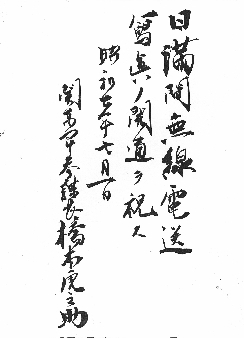 日滿間無線電送
寫眞ノ開通ヲ祝ス
昭和七年七月一日
関東軍参謀長橋本虎之助